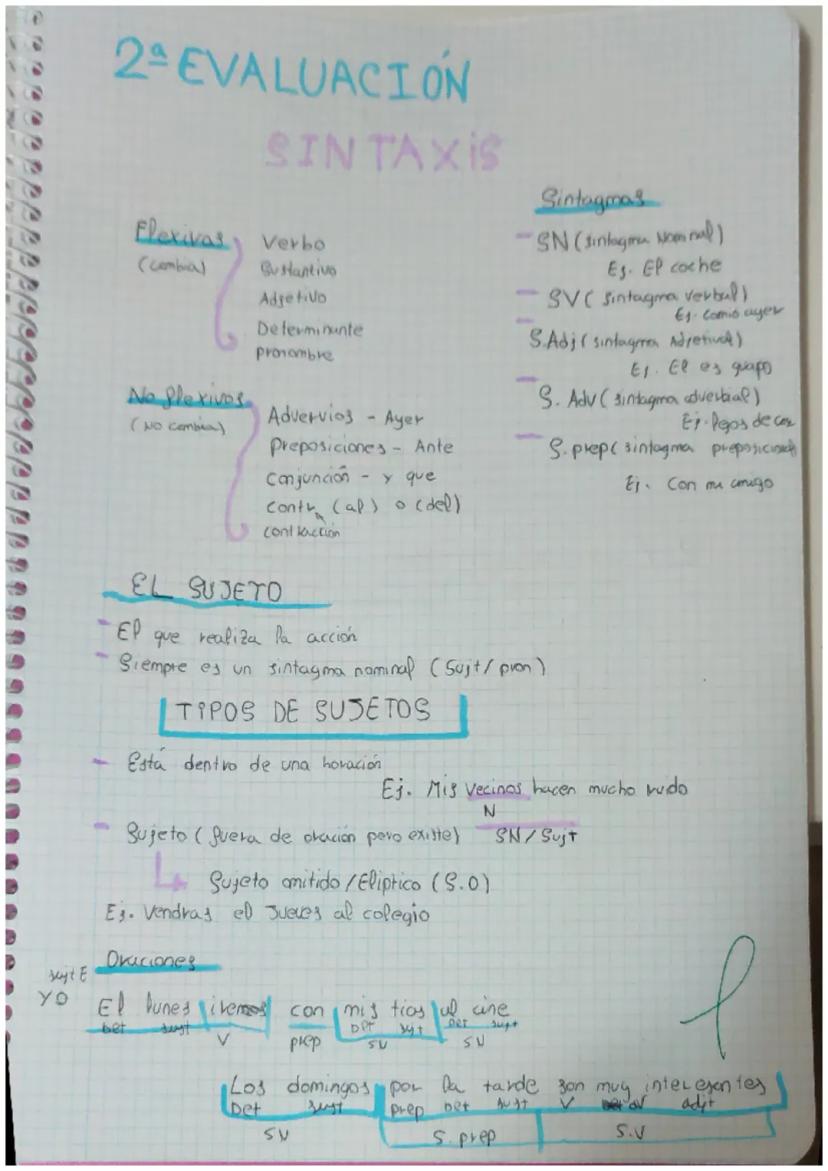 2ª EVALUACIÓN
SINTAXIS
Flexivas
(cambia)
Verbo
Sustantivo
Adjetivo
Determinante
pronombre
No flexivas
(No cambia)
Advervios - Ayer
Preposiciones - Ante
Conjunción - y que
contr (al) o (del)
contracción
Sintagmas
- SN (sintagma Nominal)
Ej. El coche
- SV ( sintagma verbal)
Ej. comió ayer
- S.Adj ( sintagma Adjetival)
Ej. El es guapo
- S. Adv ( sintagma adverbial)
Ej. lejos de casa
- S. prep ( sintagma preposicional
Ej. Con mi amigo
EL SUJETO
- El que realiza la acción
- Siempre es un sintagma nominal (Sujt / pron)
TIPOS DE SUJETOS
- Está dentro de una horación
Ej. Mis vecinos hacen mucho ruido
N
SN / Sujt
- Sujeto ( fuera de oración pero existe)
Sujeto omitido / Eliptico (S.O)
Ej. Vendras el Jueves al colegio
Oraciones
sujt E
YO
El lunes iremos con mis tios al cine
Det sust V prep Det sust Det sust
SN SN
Los domingos por la tarde son muy interesentes
Det sust prep Det sust V adv adjt
SN S. prep S.V